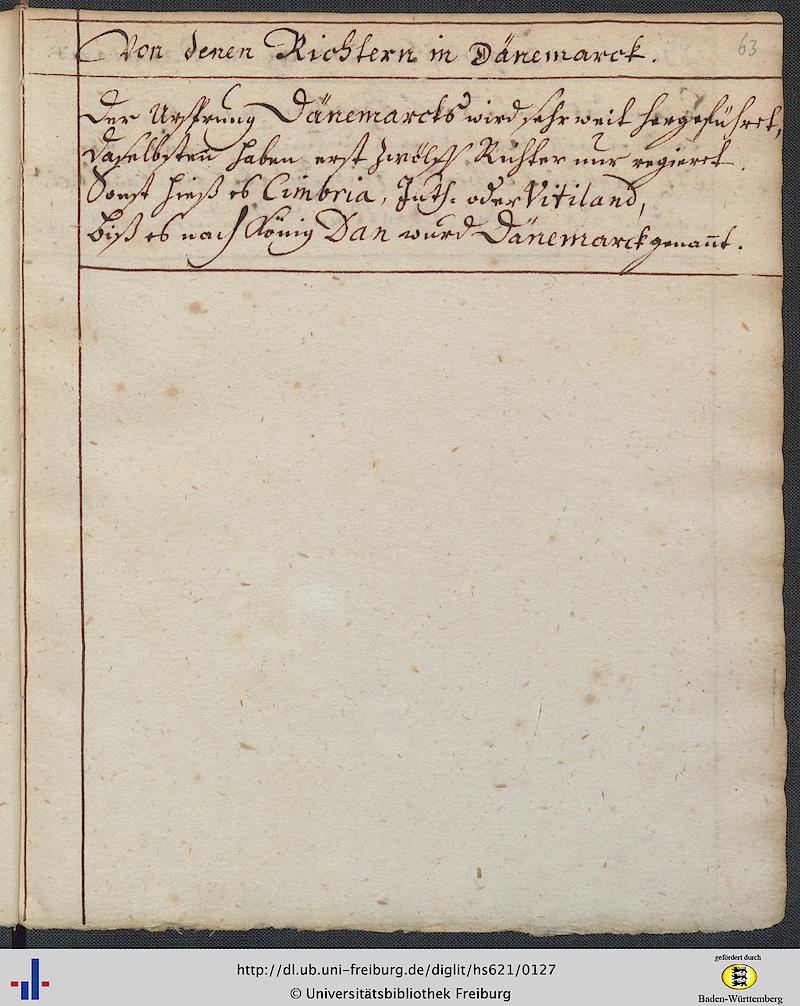 Von denen Richtern in Dänemarck.
63
Der Ursprung Dänemarcks wird sehr weit hergeführet,
daselbsten haben erst zwölff Richter nur regieret.
Sonst hieß es Cimbria, Jüth- oder Vitiland,
biß es nach König Dan wurd Dänemarck genañt.
http://dl.ub.uni-freiburg.de/diglit/hs621/0127
© Universitätsbibliothek Freiburg
gefördert durch
Baden-Württemberg